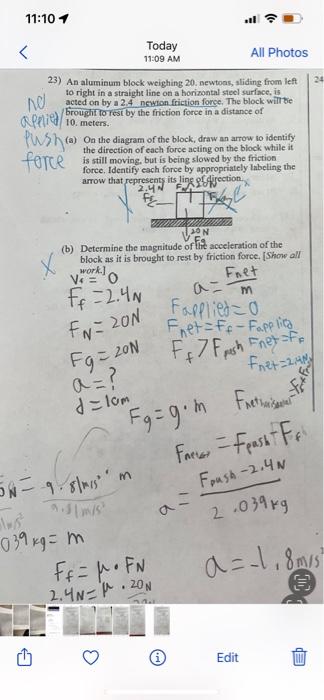 11:10
Today
11:09 AM
All Photos
23) An aluminum block weighing 20. newtons, sliding from left
to right in a straight line on a horizontal steel surface, is
acted on by a 2.4 newton friction force. The block will be
brought to rest by the friction force in a distance of
10. meters.
24
no
applied/
push
force
(a) On the diagram of the block, draw an arrow to identify
the direction of each force acting on the block while it
is still moving, but is being slowed by the friction
force. Identify each force by appropriately labeling the
arrow that represents its line of direction.
2.4N
FN 20N
Ff
20N
Fg
(b) Determine the magnitude of the acceleration of the
block as it is brought to rest by friction force. [Show all
work.]
Vf = 0
a = Fnet
m
Ff = 2.4N
Fapplied = 0
FN = 20N
Fnet = Ff - Fapplied
Fg = 20N
Ff > Fpush
Fnet = Ff
a = ?
Fnet = 2.4N
d = 10m
Fg = g · m
Fnet = Fpush + Ff
N = 9.81m/s² m
9.81m/s²
a = Fpush - 2.4N
2.039kg
039 kg = m
Ff = μ · FN
a = -1.8m/s²
2.4N = μ · 20N
Edit